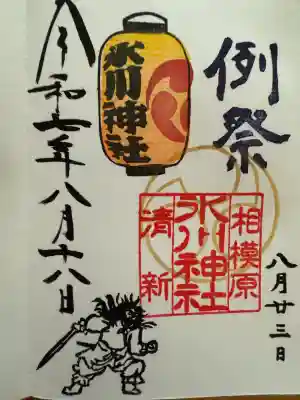 例祭
八月廿三日
氷川神社
相模原
氷川神社
清新
令和七年八月十八日